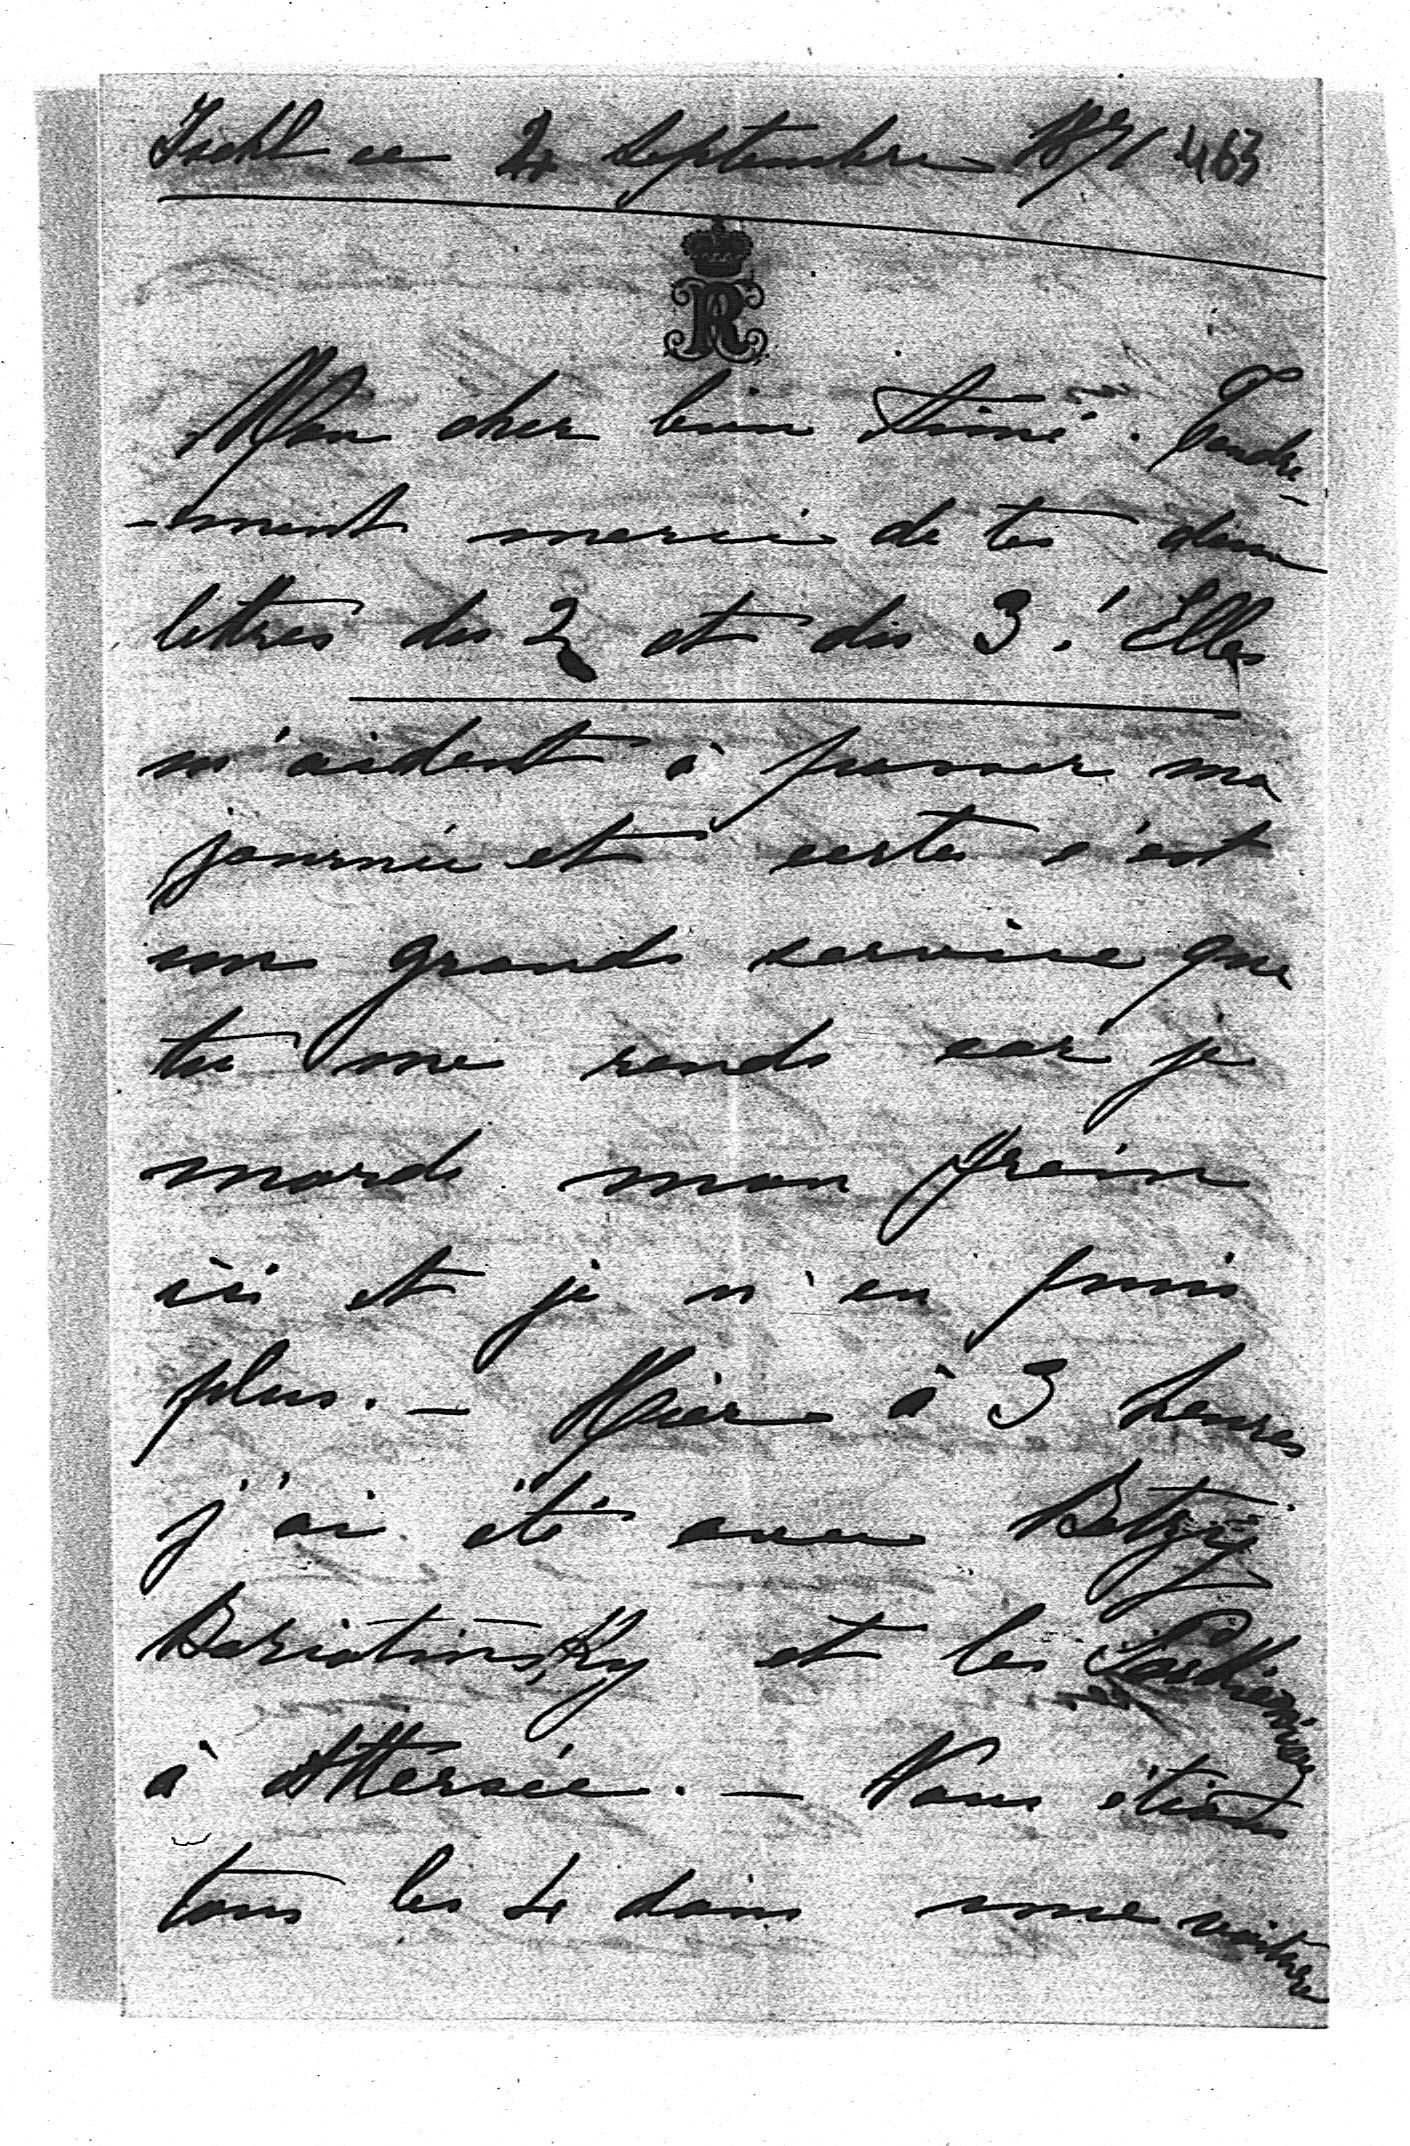 Ischl ce 4 Septembre 1871 463
R
Mon cher bien Aimé. Tendre-
-ment merci de tes deux
lettres des 2 et des 3! Elles
m'aident à passer ma
journée et certes c'est
un grands service que
tu me rends car je
mords mon frein
ici et je n'en puis
plus. — Hier à 3 heures
j'ai été avec Betzy
Bariatinsky et les
à Attersée. — Nous étions
tous les 4 dans une voiture